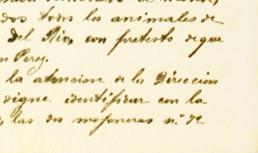 dos todos los animales de
del Rio, con pretesto de que
n Perez.
la atencion a la Direccion
digne identificar con la
las dos mojoneras n.º 72